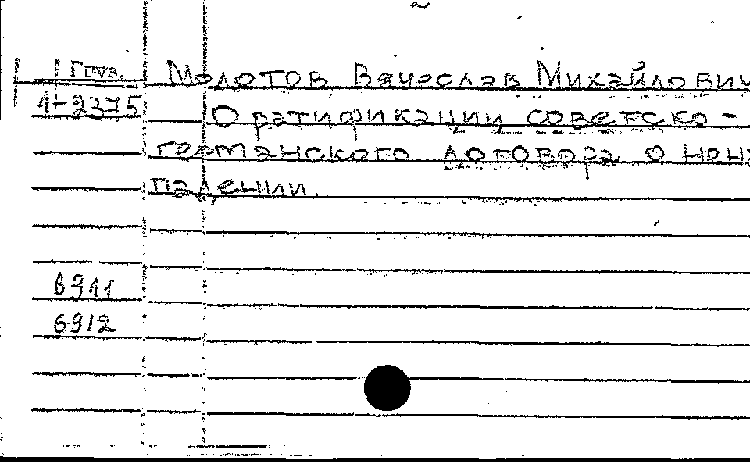 Груз.
Молотов Вячеслав Михайлович
1-2375
О ратификации советско-
германского договора о нена
падении.
6911
6912